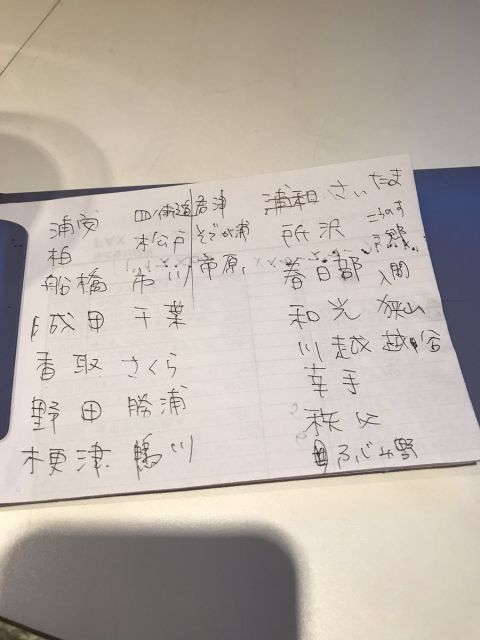 浦安 四街道 君津
柏 松戸 そでヶ浦
船橋 市川 市原
成田 千葉
香取 さくら
野田 勝浦
梗津 鴨川
浦和 さいたま
所沢 こうのす
三郷
春日部 入間
和光 狭山
川越 越谷
幸手
秩父
ふじみ野